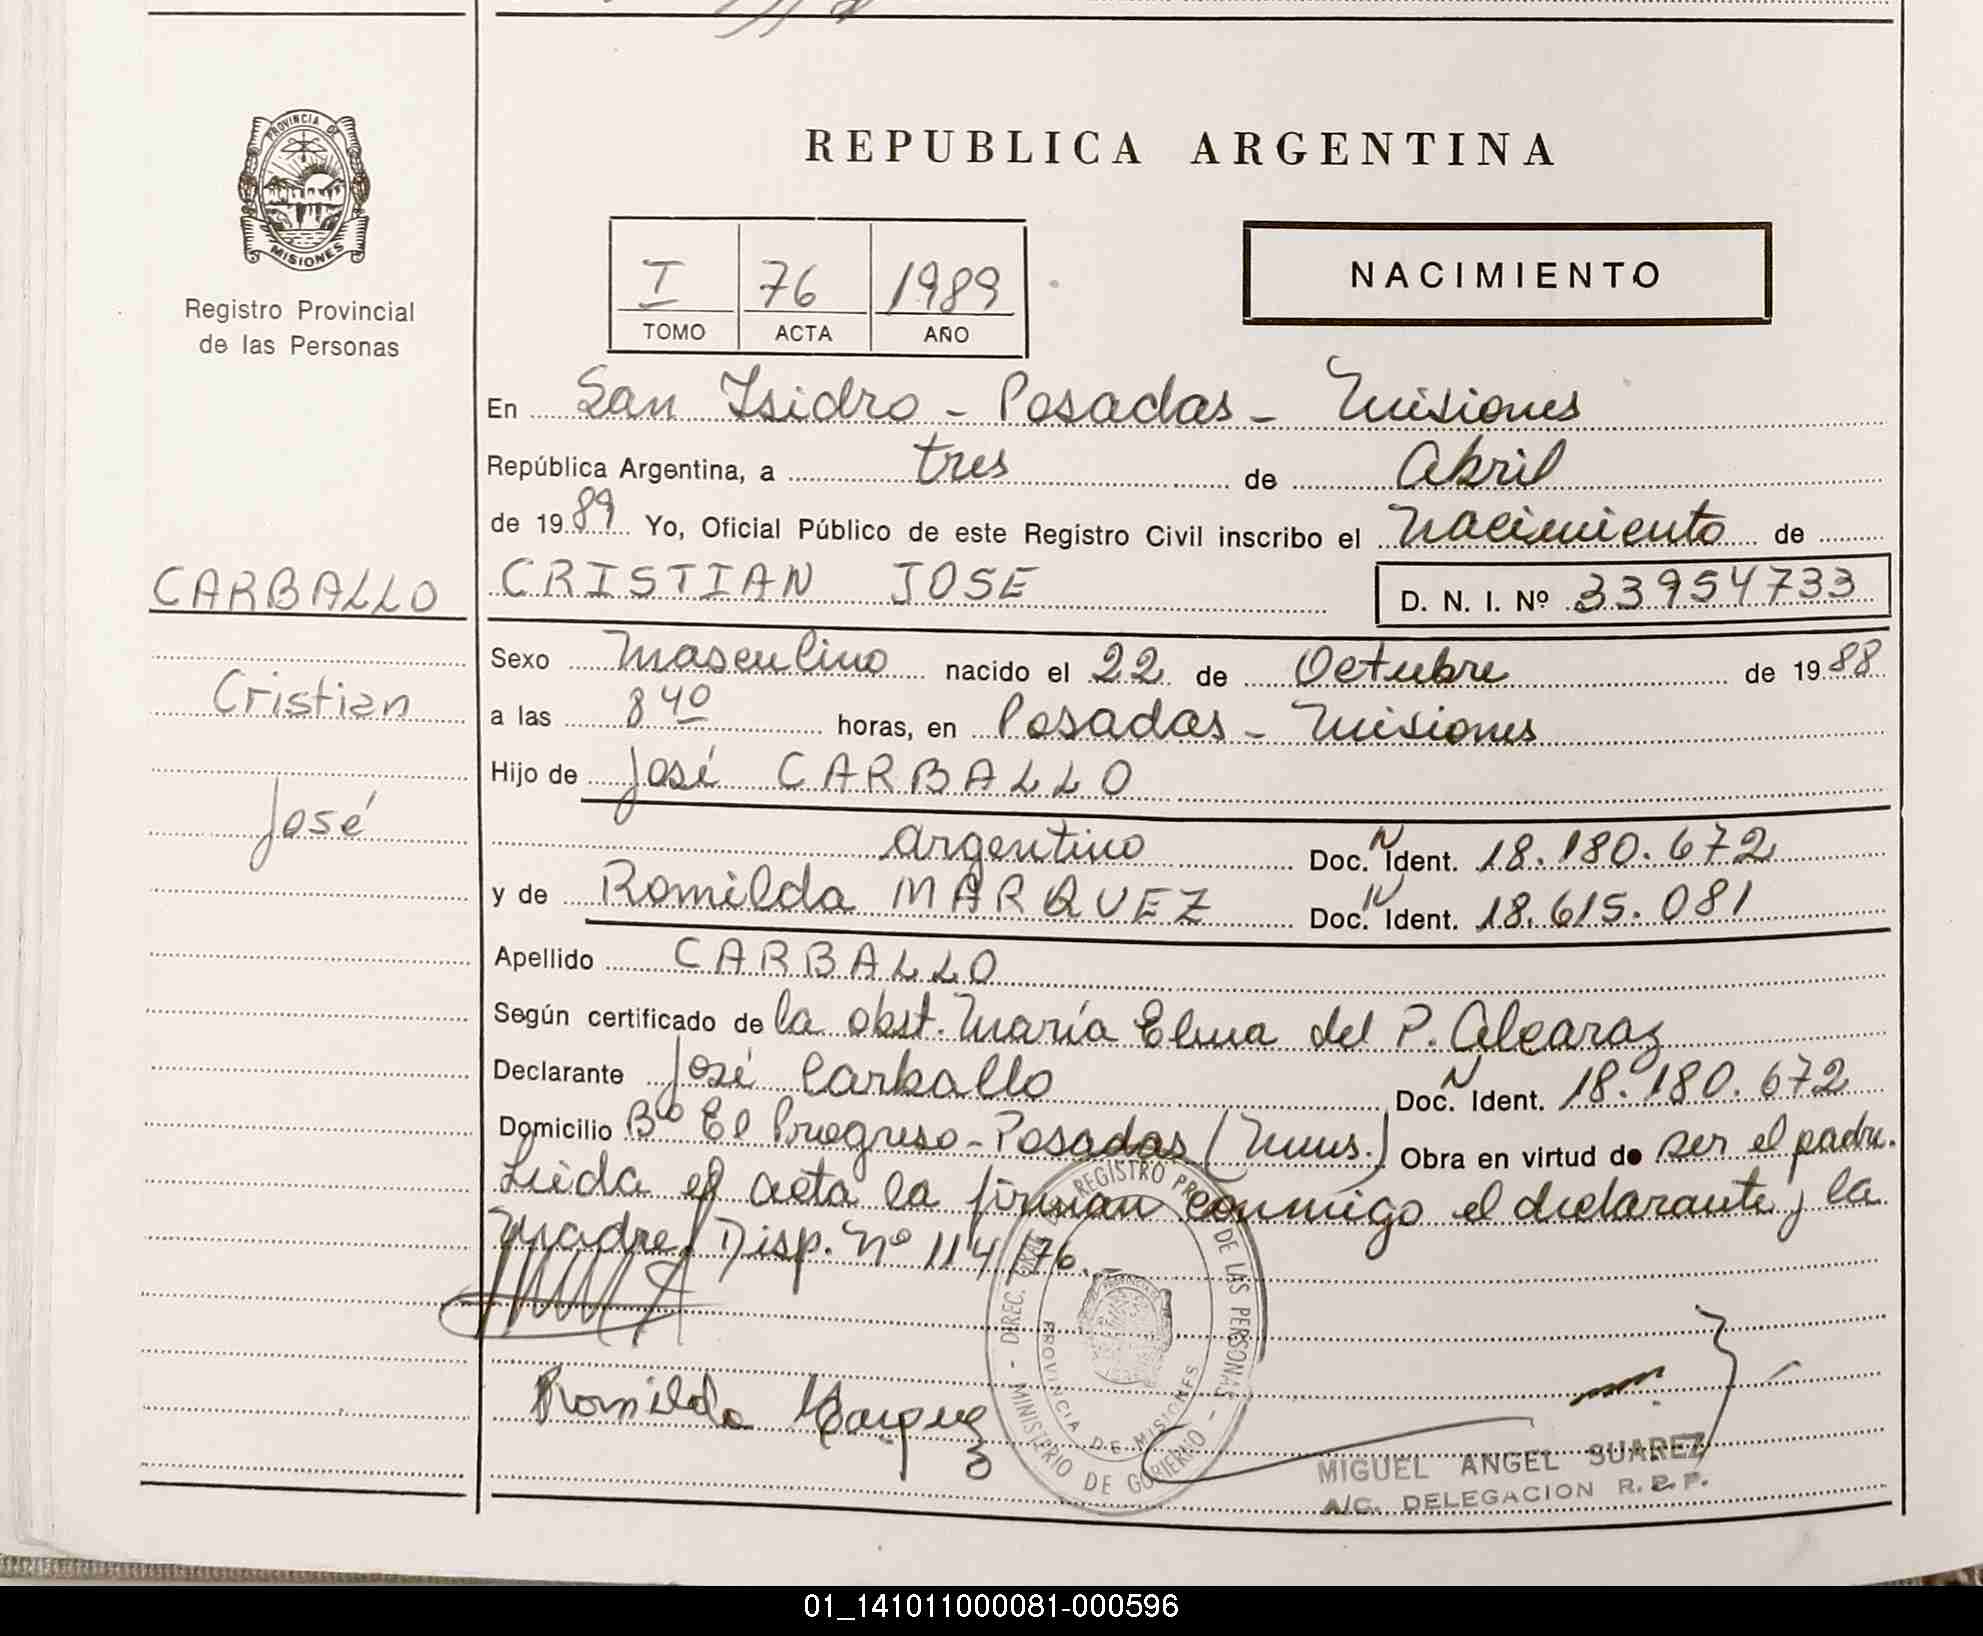 PROVINCIA DE
MISIONES
Registro Provincial
de las Personas
CARBALLO
Cristian
José
REPUBLICA ARGENTINA
I 76 1989
TOMO ACTA AÑO
NACIMIENTO
En San Isidro - Posadas - Misiones
República Argentina, a tres de Abril
de 1989 Yo, Oficial Público de este Registro Civil inscribo el nacimiento de
CRISTIAN JOSE D. N. I. Nº 33954733
Sexo masculino nacido el 22 de Octubre de 1988
a las 8 40 horas, en Posadas - Misiones
Hijo de José CARBALLO
argentino Doc. N Ident. 18.180.672
y de Romilda MARQUEZ Doc. N Ident. 18.615.081
Apellido CARBALLO
Según certificado de la obst. María Elma del P. Alcaraz
Declarante José Carballo Doc. N Ident. 18.180.672
Domicilio Bº El Progreso - Posadas (Mnes.) Obra en virtud de ser el padre.
Leida el acta la firman conmigo el declarante y la
madre. Disp. Nº 114/76.
DIREC. GRAL. DEL REGISTRO PROV. DE LAS PERSONAS
PROVINCIA DE MISIONES
MINISTERIO DE GOBIERNO
Romilda Marquez
MIGUEL ANGEL SUAREZ
A/C. DELEGACION R. P. P.
01_141011000081-000596